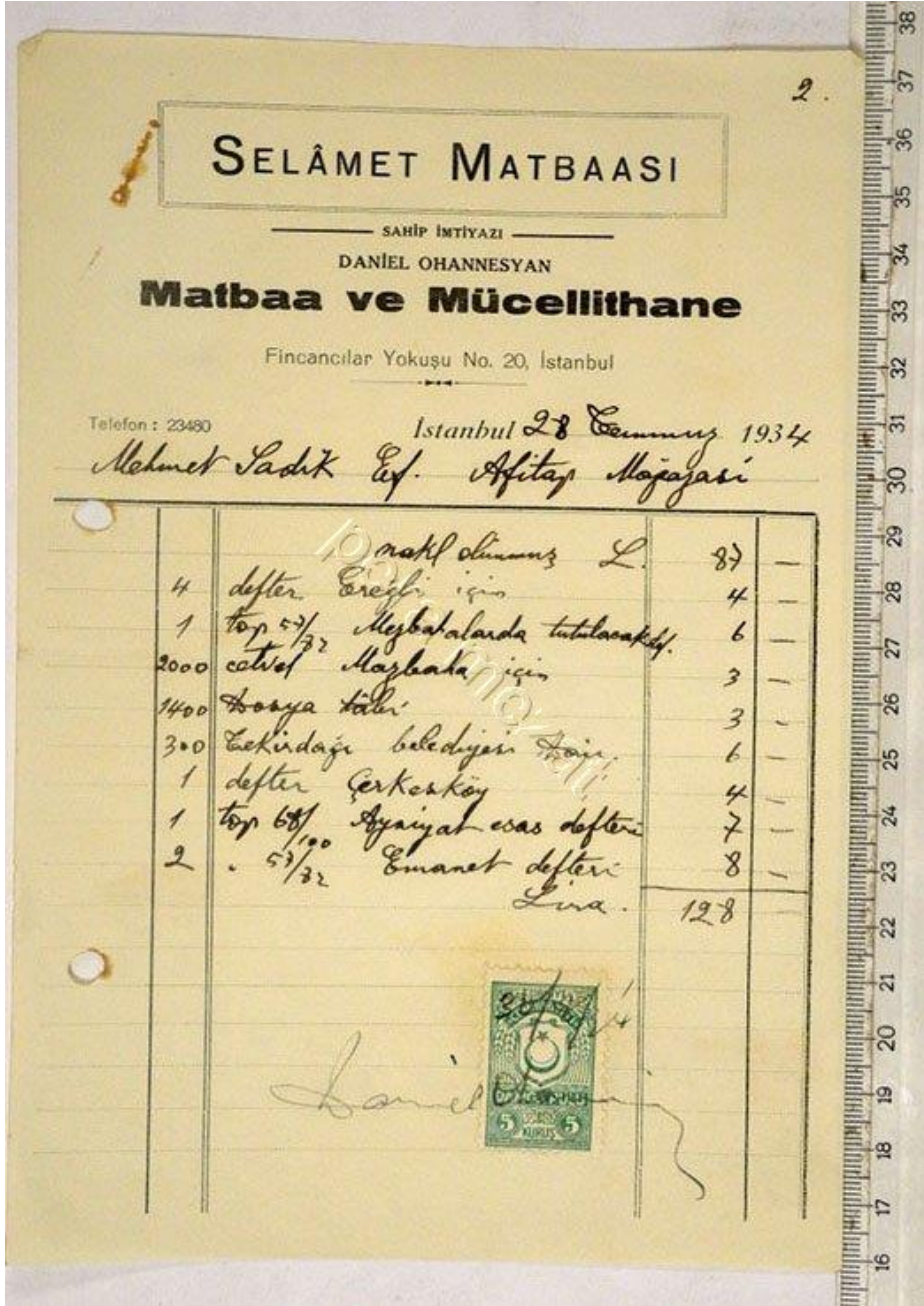 2.
SELÂMET MATBAASI
SAHİP İMTİYAZI
DANİEL OHANNESYAN
Matbaa ve Mücellithane
Fincancılar Yokuşu No. 20, İstanbul
Telefon : 23480
İstanbul 28 Temmuz 1934
Mehmet Sadık Ef. Afitap Mağazasi
nakl olunmuş L. 87 —
4 defter Ereğli için 4 —
1 top 57/82 tutulacak def. 6 —
2000 cetvel Mazbata için 3 —
1400 Dosya tabi 3 —
300 Tekirdağı belediyesi 6 —
1 defter Çerkesköy 4 —
1 top 68/100 Ayniyat esas defteri 7 —
2 " 57/82 Emanet defteri 8 —
Lira. 128 —
28/7/34
5 KURUŞ 5
Daniel